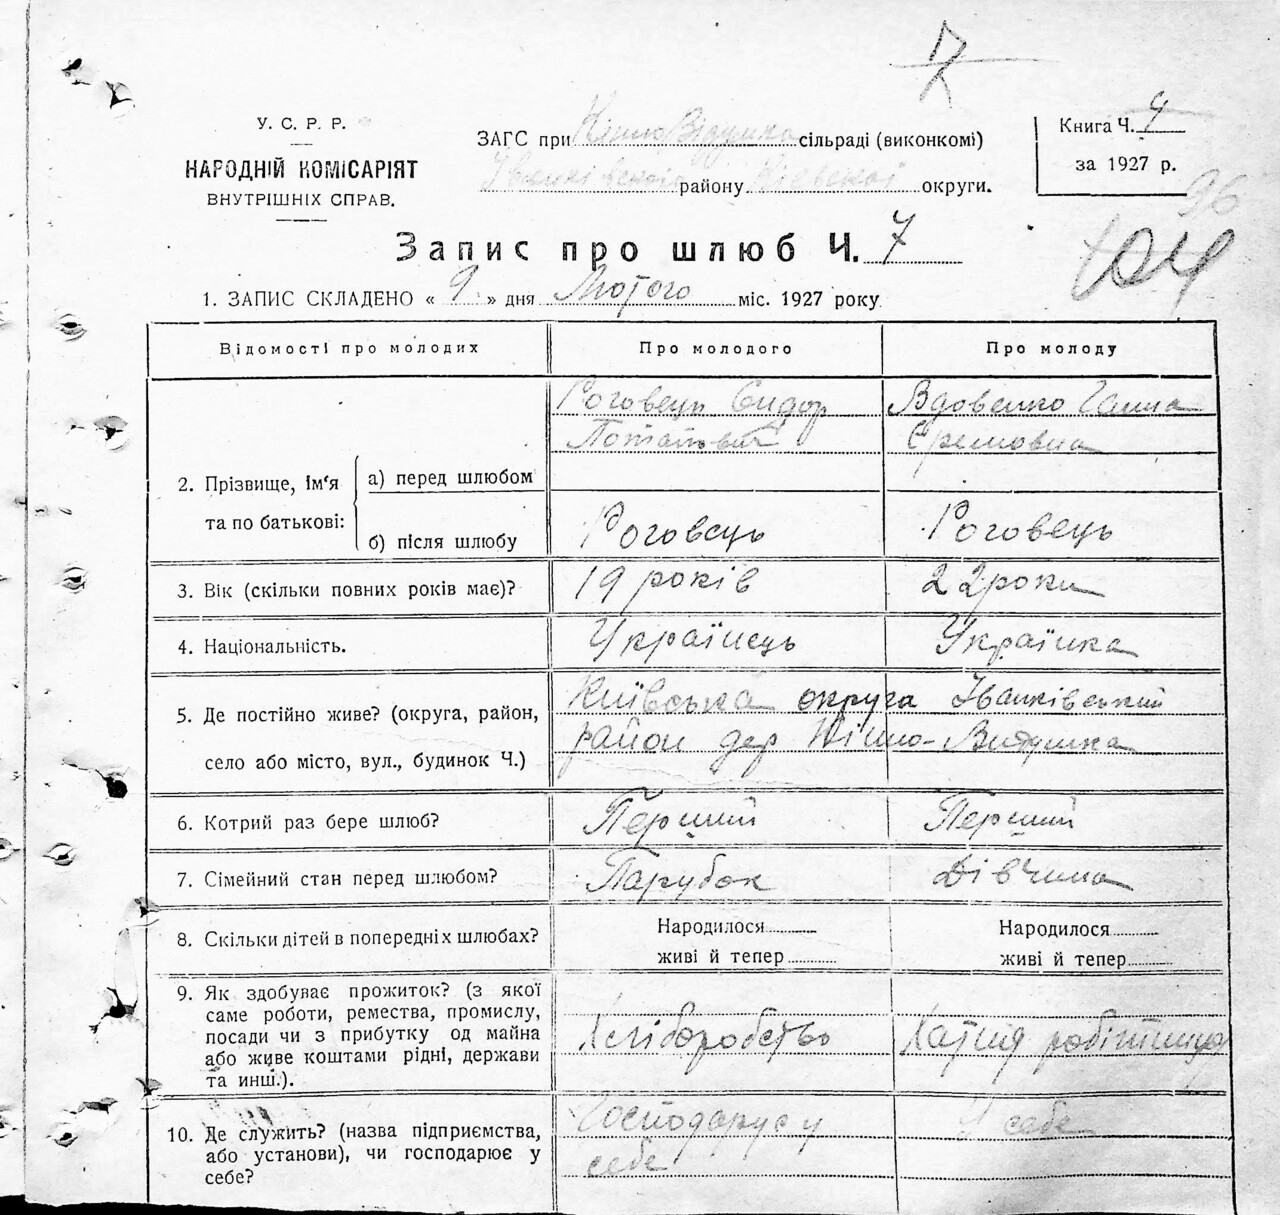 7
У. С. Р. Р.
НАРОДНІЙ КОМІСАРІЯТ
ВНУТРІШНІХ СПРАВ.
ЗАГС при сільраді (виконкомі)
Іванківського району Київської округи.
Книга Ч. 4
за 1927 р.
96
104
Запис про шлюб Ч. 7
1. ЗАПИС СКЛАДЕНО « 9 » дня Лютого міс. 1927 року
Відомості про молодих Про молодого Про молоду
Роговець Сидор Вдовенко Ганна
Потапович Єремовна
2. Прізвище, ім'я та по батькові: а) перед шлюбом
б) після шлюбу Роговець Роговець
3. Вік (скільки повних років має)? 19 років 22 роки
4. Національність. Українець Українка
5. Де постійно живе? (округа, район, Київська округа Іванківський
село або місто, вул., будинок Ч.) район дер
6. Котрий раз бере шлюб? Перший Перший
7. Сімейний стан перед шлюбом? Парубок Дівчина
8. Скільки дітей в попередніх шлюбах? Народилося Народилося
живі й тепер живі й тепер
9. Як здобуває прожиток? (з якої
саме роботи, ремества, промислу,
посади чи з прибутку од майна
або живе коштами рідні, держави
та инш.). Хліборобство Хатня робітниця
10. Де служить? (назва підприємства,
або установи), чи господарює у
себе? Господарує у У себе
себе